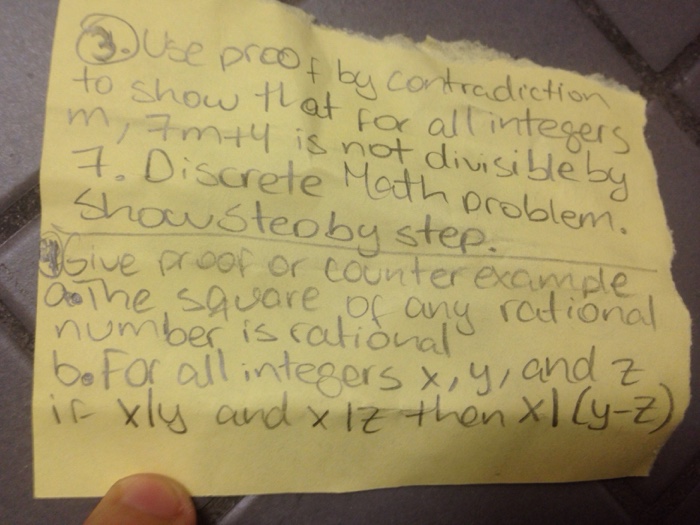 3. Use proof by contradiction
to show that for all integers
m, 7m+4 is not divisible by
7. Discrete Math problem.
Show Step by step.
Give proof or counter example
a. The square of any rational
number is rational
b. For all integers x, y, and z
if x|y and x|z then x|(y-z)